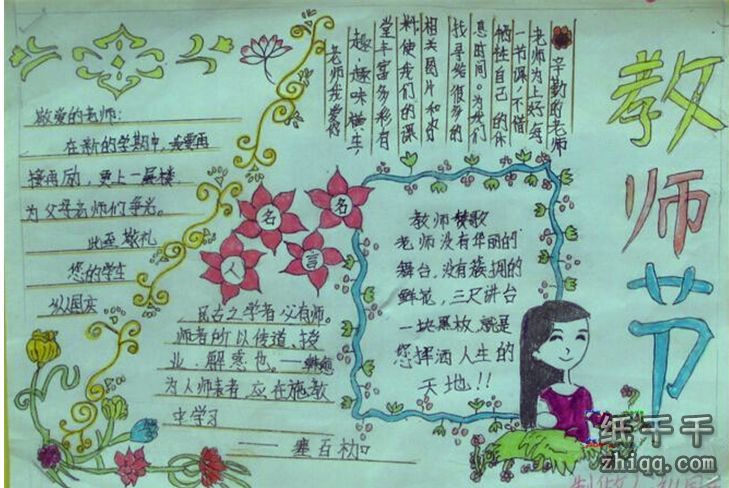 教师节
辛勤的老师
老师为上好每
一节课,不惜
牺牲自己的休
息时间。为我们
找寻给很多的
相关图片和资
料,使我们的课
堂丰富多彩有
趣,趣味横生,
老师我爱你
敬爱的老师:
在新的学期中,我要再
接再励,更上一层楼,
为父母老师们争光。
此至敬礼
您的学生
名人名言
民古之学者必有师。
师者所以传道,授
业,解惑也。——韩愈
为人师表者,应在施教
中学习
教师赞歌
老师没有华丽的
舞台,没有簇拥的
鲜花,三尺讲台
一块黑板,就是
您挥洒人生的
天地!!
纸千千
zhiqq.com